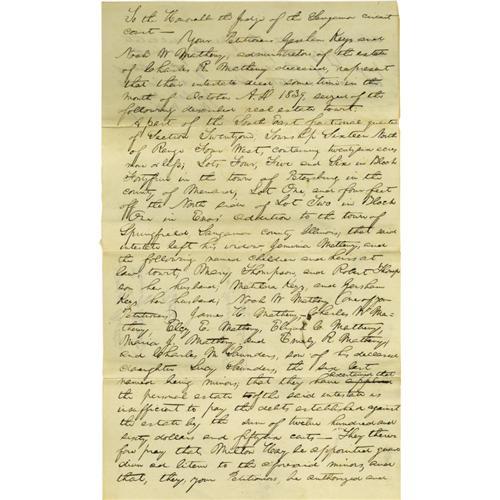 To the Honorable the judge of the Sangamon circuit
court—
Your Petitioners Gershom Keyes and
Noah W Matheny, administrators of the estate
of Charles R. Matheny deceased, represent
that their intestate died some time in the
month of October A.D 1839, seized of the
following described real estate towit:
A part of the South East fractional quarter
of Section Twentyone, Township Sixteen North
of Range Four West, containing acres
more or less; Lots Four, Five and Six in Block
Fortyfive in the town of Petersburg in the
county of Menard, Lot One and four feet
off the North side of Lot Two in Block
One in Enos' addition to the town of
Springfield, Sangamon county Illinois, that said
intestate left his widow Jemima Matheny, and
the following named children and heirs at
law, towit, Mary Thompson and Robert Thomp
son her husband, Keyes and Gershom
Keyes her husband; Noah W Matheny (one of your
Petitioners) James H. Matheny, Charles W. Ma-
theny, E. Matheny, C. Matheny,
Maria J. Matheny and Emily R. Matheny,
and Charles M. Saunders, son of his deceased
daughter Lucy Saunders, the six last
named being minors; that they have ascertained that
the personal estate of the said intestate is
insufficient to pay the debts established against
the estate by the sum of twelve hundred and
sixty dollars and cents— They there
fore pray that Milton Hay be appointed guar
dian ad litem to the aforesaid minors, and
that, they, your Petitioners, be authorized and